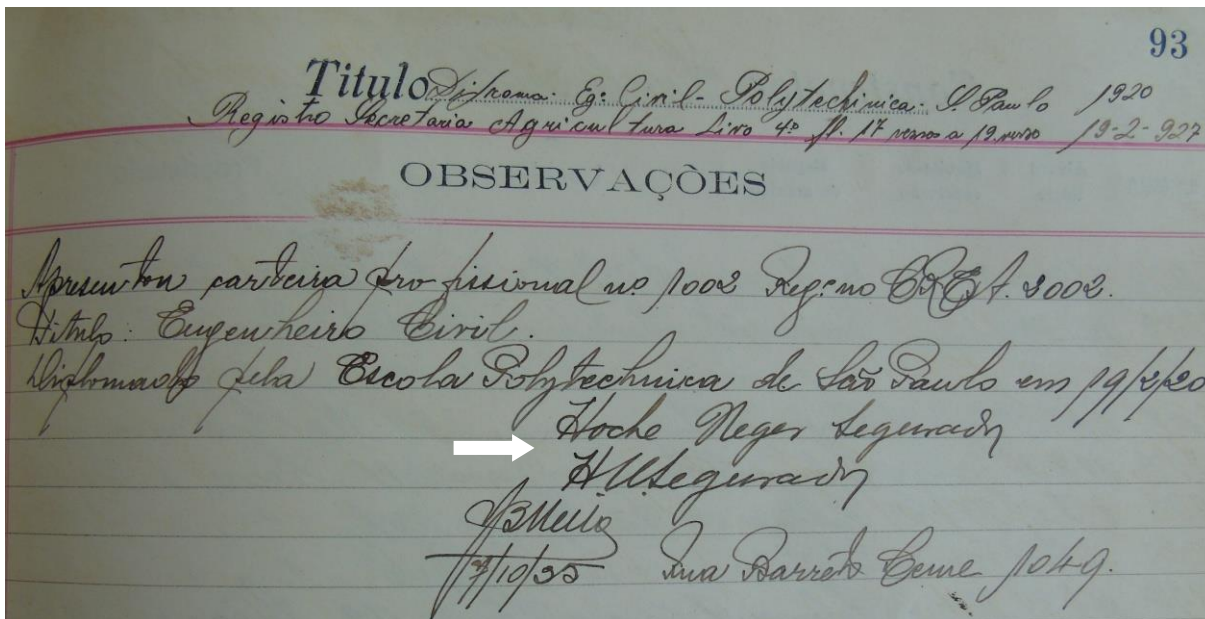 93
Titulo Diploma. Eg: Civil - Polytechinica. S. Paulo 1920
Registro Secretaria Agricultura Livro 4º fl. 17 verso a 19 verso 19-2-927
OBSERVAÇÕES
Apresentou carteira profissional nº 1002 Reg: no CREA. 2002.
Titulo: Engenheiro Civil.
Diplomado pela Escola Polytechnica de São Paulo em 19/2/20
Hoche Neger Segurado
HNSegurado
/10/35 Rua Barreto Leme 1049.